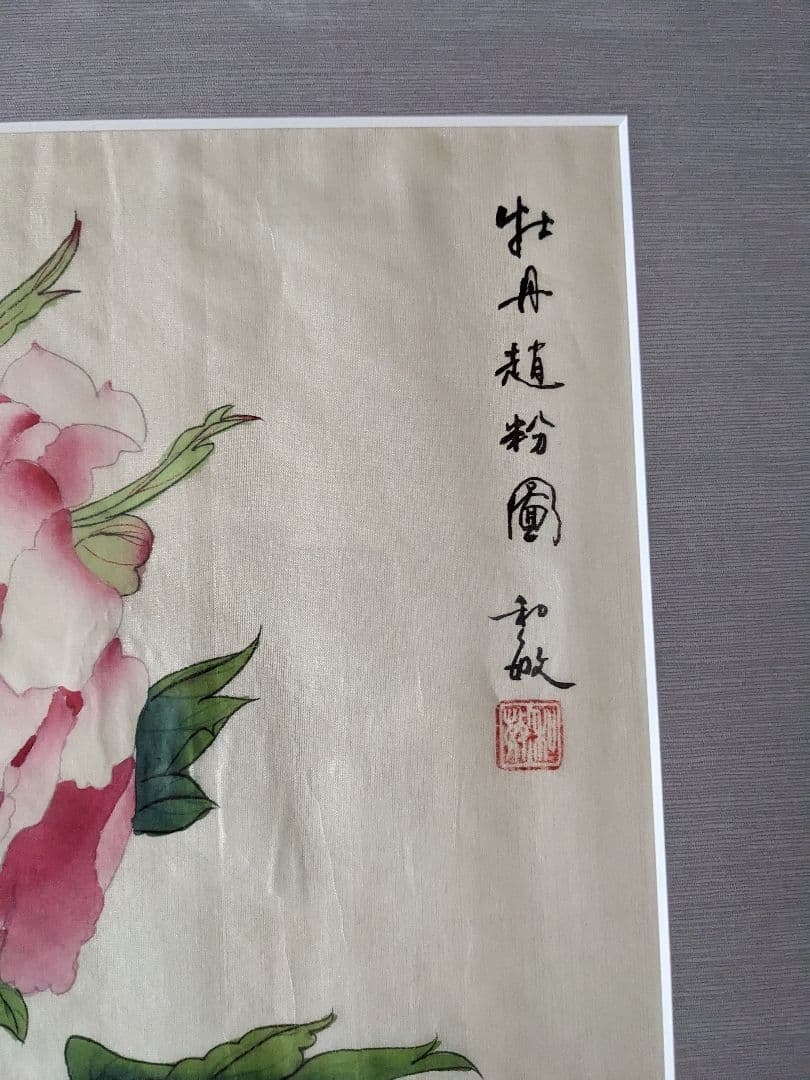 牡丹趙粉圖
和敏